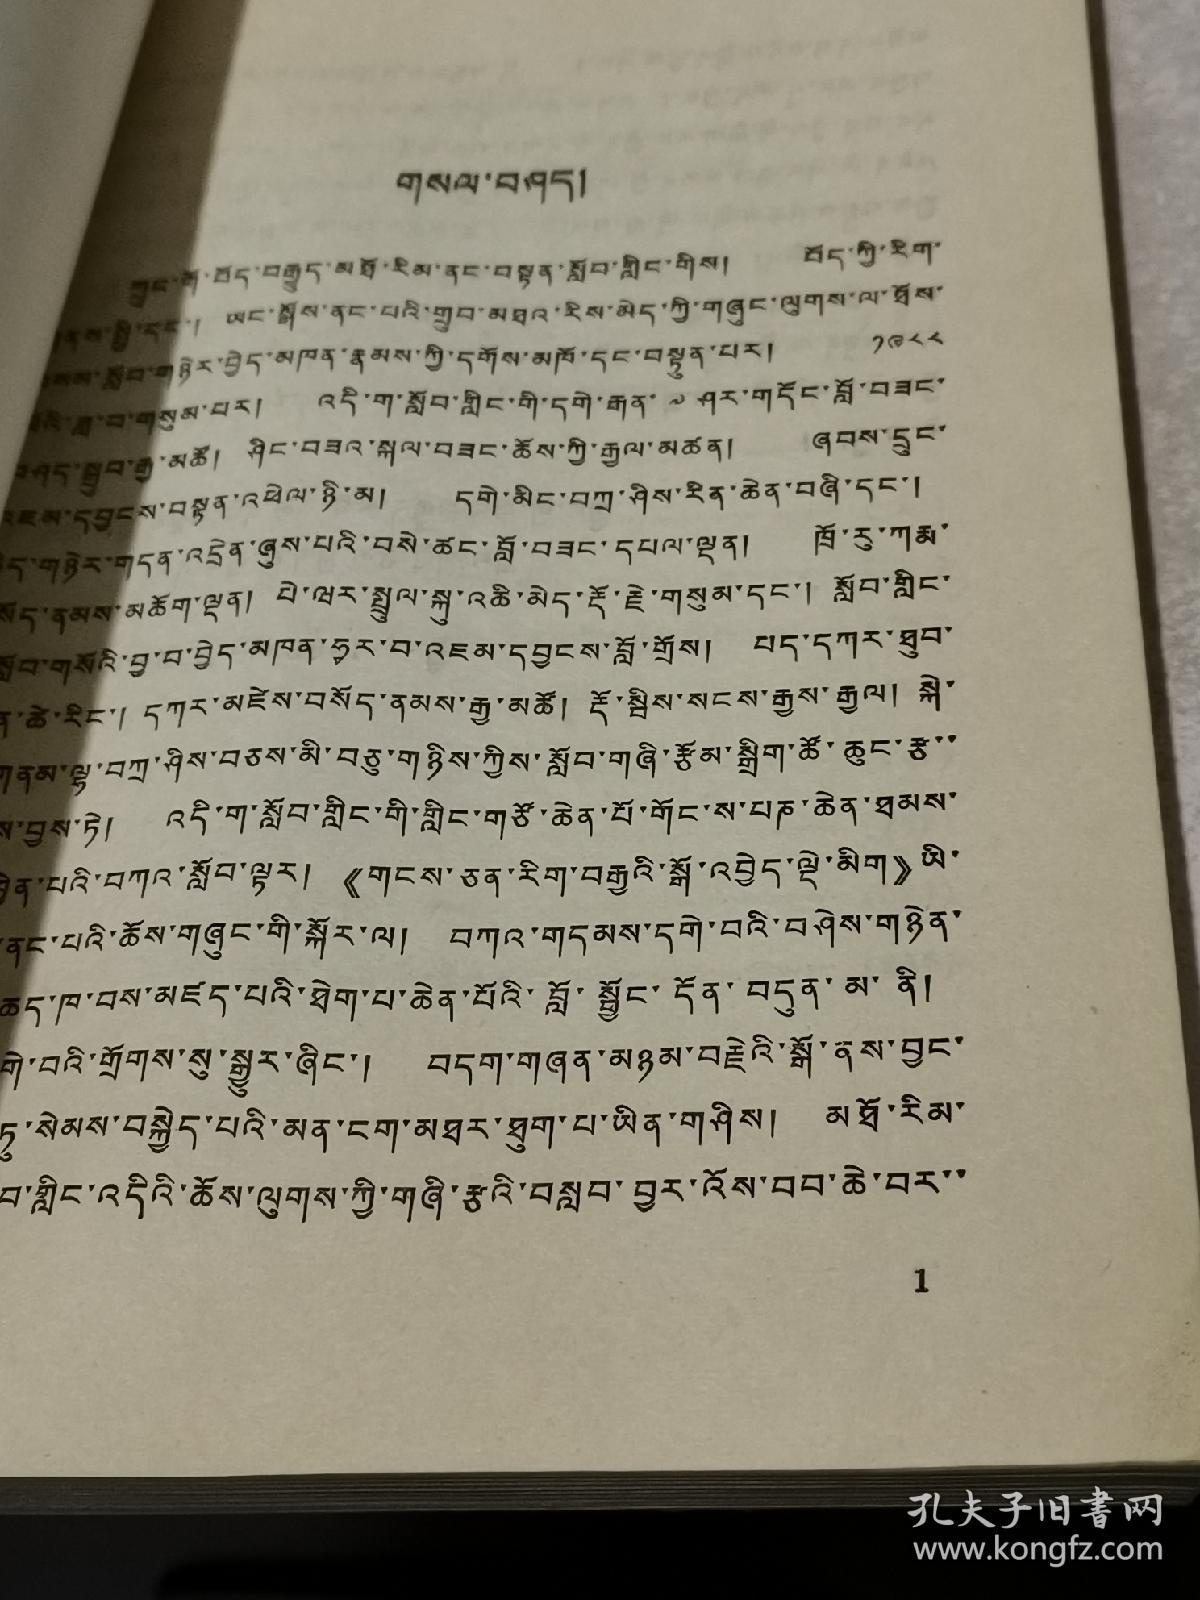 གསལ་བཤད།
ཀྲུང་གོ་བོད་བརྒྱུད་མཐོ་རིམ་ནང་བསྟན་སློབ་གླིང་གིས། བོད་ཀྱི་རིག་
གནས་སྤྱི་དང་། ཡང་སྒོས་ནང་པའི་གྲུབ་མཐའ་རིས་མེད་ཀྱི་གཞུང་ལུགས་ལ་ཐོས་
སློབ་གཉེར་བྱེད་མཁན་རྣམས་ཀྱི་དགོས་མཁོ་དང་བསྟུན་པར། ༡༩༨༨
ལོའི་ཟླ་བ་གསུམ་པར། འདི་ག་སློབ་གླིང་གི་དགེ་རྒན་ ཤར་གདོང་བློ་བཟང་
བཤད་སྒྲུབ་རྒྱ་མཚོ། ཤིང་བཟའ་སྐལ་བཟང་ཆོས་ཀྱི་རྒྱལ་མཚན། ཞབས་དྲུང་
འཇམ་དབྱངས་བསྟན་འཕེལ་ཉི་མ། དགེ་མིང་བཀྲ་ཤིས་རིན་ཆེན་བཞི་དང་།
གཉེར་གདན་འདྲེན་ཞུས་པའི་བསེ་ཚང་བློ་བཟང་དཔལ་ལྡན། ཁྲོ་རུ་ཀརྨ་
སོད་ནམས་མཆོག་ལྡན། པེ་ཝར་སྤྲུལ་སྐུ་འཆི་མེད་རྡོ་རྗེ་གསུམ་དང་། སློབ་གླིང་
སློབ་གསོའི་བྱ་བ་བྱེད་མཁན་ཧྱར་བ་འཇམ་དབྱངས་བློ་གྲོས། པད་དཀར་ཐུབ་
ཚེ་རིང་། དཀར་མཛེས་བསོད་ནམས་རྒྱ་མཚོ། རྡོ་སྦིས་སངས་རྒྱས་རྒྱལ། སྐེ་
གནམ་ལྷ་བཀྲ་ཤིས་བཅས་མི་བཅུ་གཉིས་ཀྱིས་སློབ་གཞི་རྩོམ་སྒྲིག་ཚོ་ཆུང་རྩ་
བྱས་ཏེ། འདི་ག་སློབ་གླིང་གི་གླིང་གཙོ་ཆེན་པོ་གོང་ས་པཎ་ཆེན་ཐམས་
པའི་བཀའ་སློབ་ལྟར། 《གངས་ཅན་རིག་བརྒྱའི་སྒོ་འབྱེད་ལྡེ་མིག》ཡི་
ནང་པའི་ཆོས་གཞུང་གི་སྐོར་ལ། བཀའ་གདམས་དགེ་བའི་བཤེས་གཉེན་
ཆད་ཁ་བས་མཛད་པའི་ཐེག་པ་ཆེན་པོའི་བློ་སྦྱོང་དོན་བདུན་མ་ནི།
བའི་གྲོགས་སུ་སྒྱུར་ཞིང་། བདག་གཞན་མཉམ་བརྗེའི་སྒོ་ནས་བྱང་
ཏུ་སེམས་བསྐྱེད་པའི་མན་ངག་མཐར་ཐུག་པ་ཡིན་གཤིས། མཐོ་རིམ་
གླིང་འདིའི་ཆོས་ལུགས་ཀྱི་གཞི་རྩའི་བསླབ་བྱར་འོས་བབ་ཆེ་བར་
1
孔夫子旧书网
www.kongfz.com